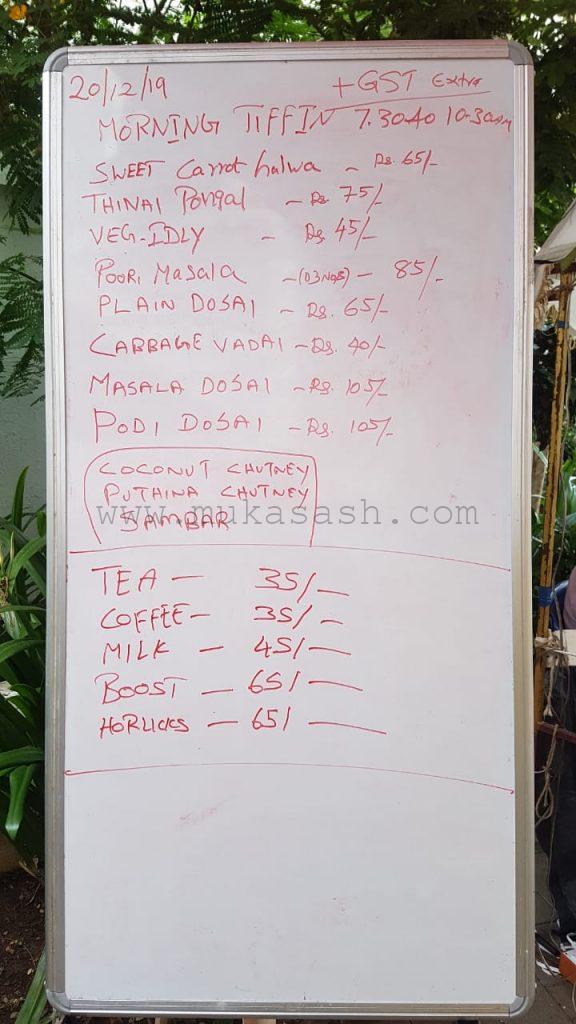 20/12/19 +GST Extra
MORNING TIFFIN 7.30 to 10.30am
SWEET Carrot halwa - Rs. 65/-
THINAI Pongal - Rs 75/-
VEG-IDLY - Rs 45/-
POORI Masala - (03Nos) - 85/-
PLAIN DOSAI - Rs. 65/-
CABBAGE VADAI - Rs. 40/-
MASALA DOSAI - Rs. 105/-
PODI DOSAI - Rs. 105/-
COCONUT CHUTNEY
PUTHINA CHUTNEY
SAMBAR
www.mukasash.com
TEA - 35/-
COFFEE - 35/-
MILK - 45/-
BOOST - 65/-
HORLICKS - 65/-